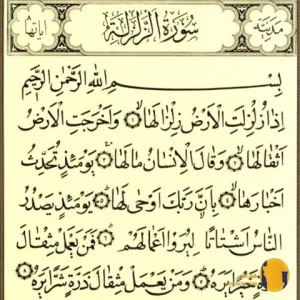 مدنية سورة الزلزلة آياتها
بِسْمِ اللهِ الرَّحْمٰنِ الرَّحِيمِ
إِذَا زُلْزِلَتِ الْأَرْضُ زِلْزَالَهَا وَأَخْرَجَتِ الْأَرْضُ
أَثْقَالَهَا وَقَالَ الْإِنْسَانُ مَا لَهَا يَوْمَئِذٍ تُحَدِّثُ
أَخْبَارَهَا بِأَنَّ رَبَّكَ أَوْحَى لَهَا يَوْمَئِذٍ يَصْدُرُ
النَّاسُ أَشْتَاتًا لِيُرَوْا أَعْمَالَهُمْ فَمَنْ يَعْمَلْ مِثْقَالَ
يَرَهُ وَمَنْ يَعْمَلْ مِثْقَالَ ذَرَّةٍ شَرًّا يَرَهُ